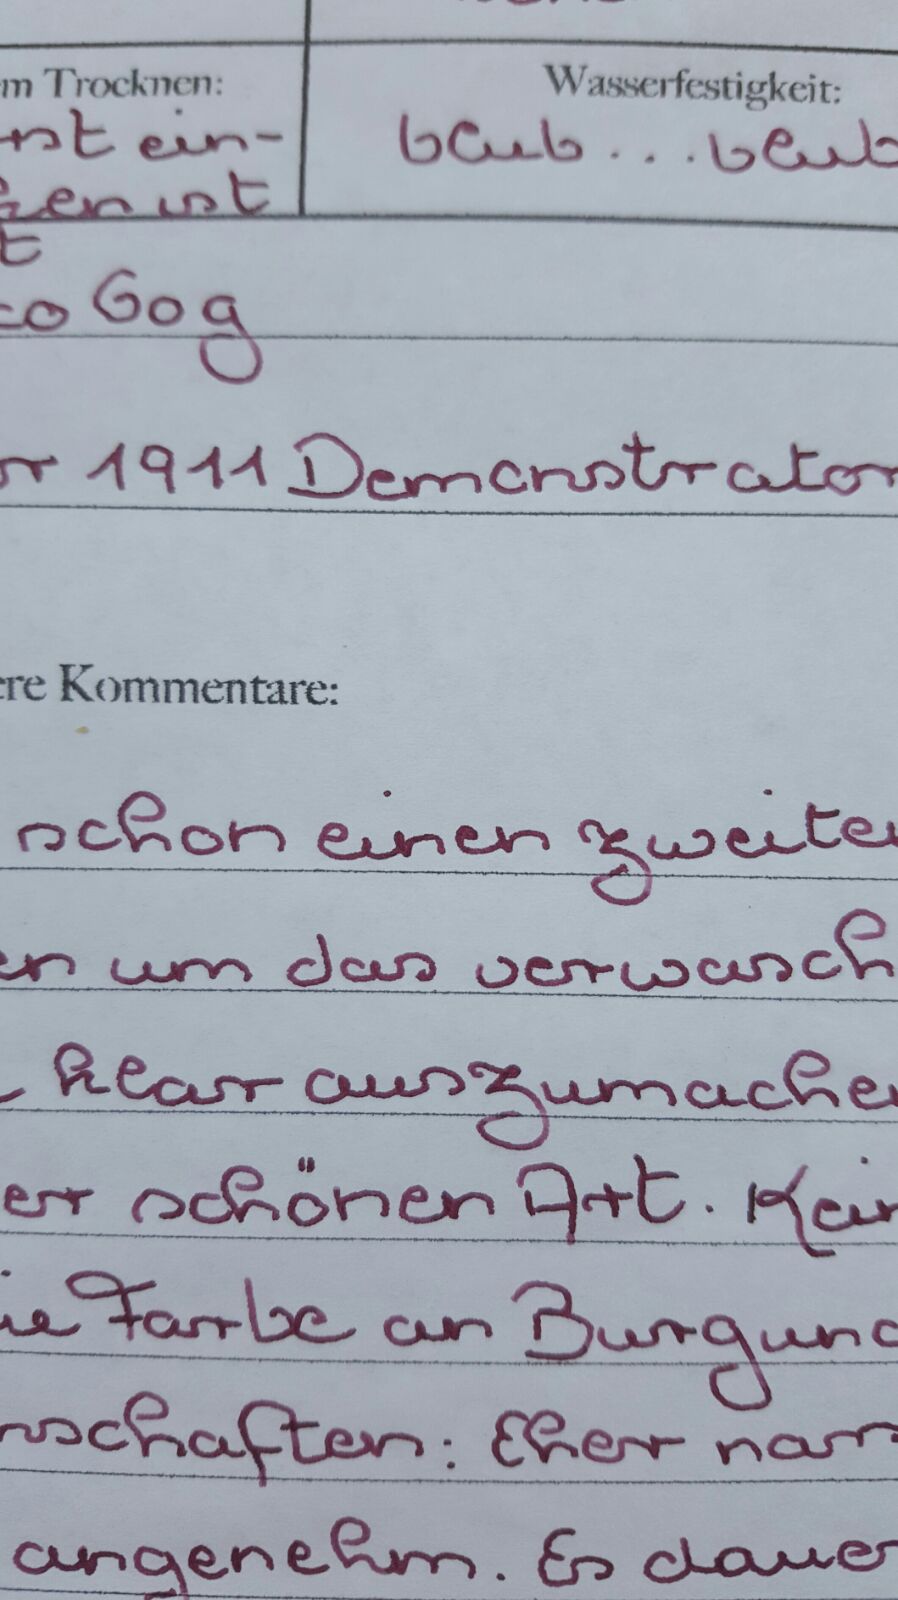 m Trocknen:
Wasserfestigkeit:
rst ein-
blub...blub
ken ist
t
co Gog
or 1911 Demonstrator
ere Kommentare:
schon einen zweiten
en um das verwasch
klar auszumachen
er schönen Art. Kein
ie Farbe an Burgund
nschaften: Eher nass
angenehm. Es dauer